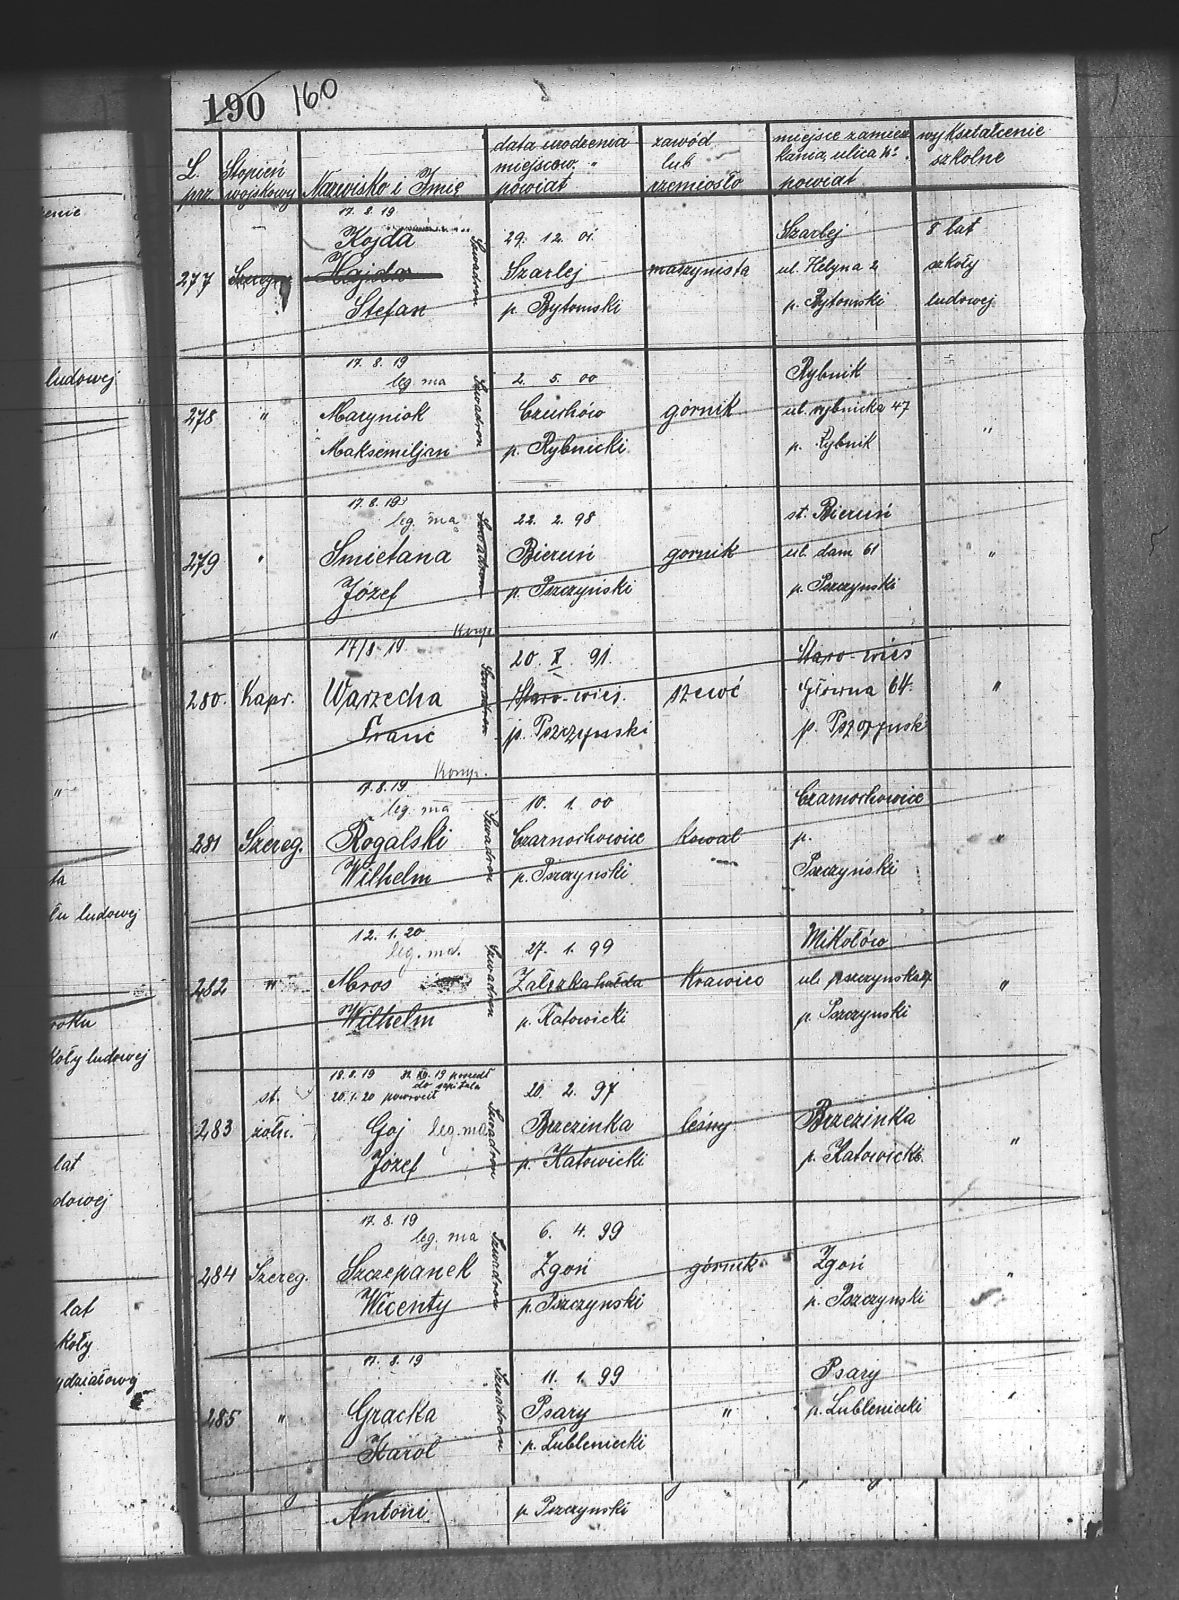 190 160
L. prz.
Stopień wojskowy
Nazwisko i Imię
data urodzenia
miejscow. "
powiat
zawód
lub
rzemiosło
miejsce zamiesz
kania, ulica Nr.
powiat
wykształcenie
szkolne
277
17. 8. 19
Kojda
Kajda
Stefan
Szwadron
29. 12. 01
Szarlej
p. Bytomski
maszynista
Szarlej
ul. Helyna 2
p. Bytomski
8 lat
szkoły
ludowej
278 "
17. 8. 19
leg. ma
Maryniok
Maksemiljan
Szwadron
2. 5. 00
Czuchów
p. Rybnicki
górnik
Rybnik
ul. rybnicka 47
p. Rybnik
"
279 "
17. 8. 19
leg. ma
Smietana
Józef
Szwadron
22. 2. 98
Bieruń
p. Pszczyński
gornik
st. Bieruń
ul. dam 61
p. Pszczynski
"
280. Kapr.
Komp.
17/8 19
Warzecha
Franc
Szwadron
20. X. 91.
Staro-wieś.
p. Pszczynski
szewć
Staro-wieś
Główna 64.
p. Pszczynsk
"
281 Szereg.
Komp.
17.8.19
leg. ma
Rogalski
Wilhelm
Szwadron
10. 1. 00
Czarnochowice
p. Pszczyński
Kowal
Czarnochowice
p.
Pszczyński
"
282 "
12. 1. 20
leg. ma.
Mros
Wilhelm
Szwadron
27. 1. 99
Załęzka hałda
p. Katowicki
Krawiec
Mikołów
ul. pszczynska
p. Pszczynski
"
283 st. żołn.
18. 8. 19
19 poszedł
do szpitala
20. 1. 20 powrócił
Goj leg. ma
Józef
Szwadron
20. 2. 97
Brzezinka
p. Katowicki
leśny
Brzezinka
p. Katowicki
"
284 Szereg.
17. 8. 19
leg. ma
Szczepanek
Wicenty
Szwadron
6. 4. 99
Zgoń
p. Pszczynski
górnik
Zgoń
p. Pszczynski
"
285 "
17. 8. 19
Gracka
Karol
Szwadron
11. 1. 99
Psary
p. Lubleniecki
"
Psary
p. Lubleniecki
"
Antoni
p. Pszczynski
ludowej
ludowej
roku
koły ludowej
lat
dowej
lat
koły